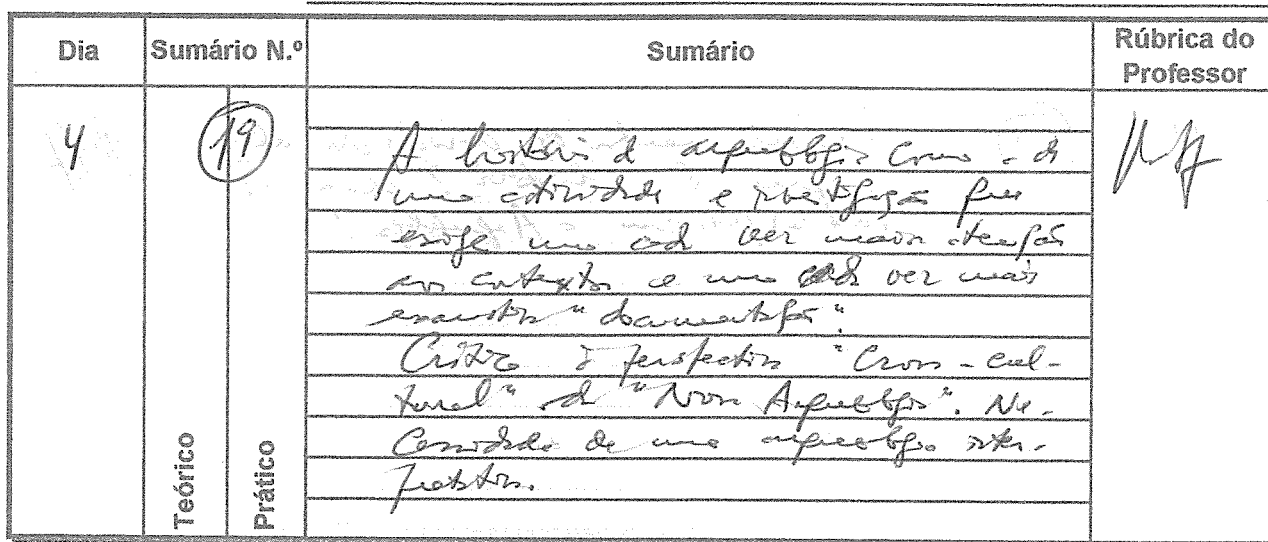 Dia Sumário N.º Sumário Rúbrica do Professor
4 19
A história da arqueologia como a de
uma actividade e investigação que
exige uma cada vez maior atenção
aos contextos e uma cada vez mais
exaustiva "documentação".
Crítica à perspectiva "Cross-cul-
tural" da "Nova Arqueologia". Ne-
cessidade de uma arqueologia inter-
pretativa.
Teórico
Prático